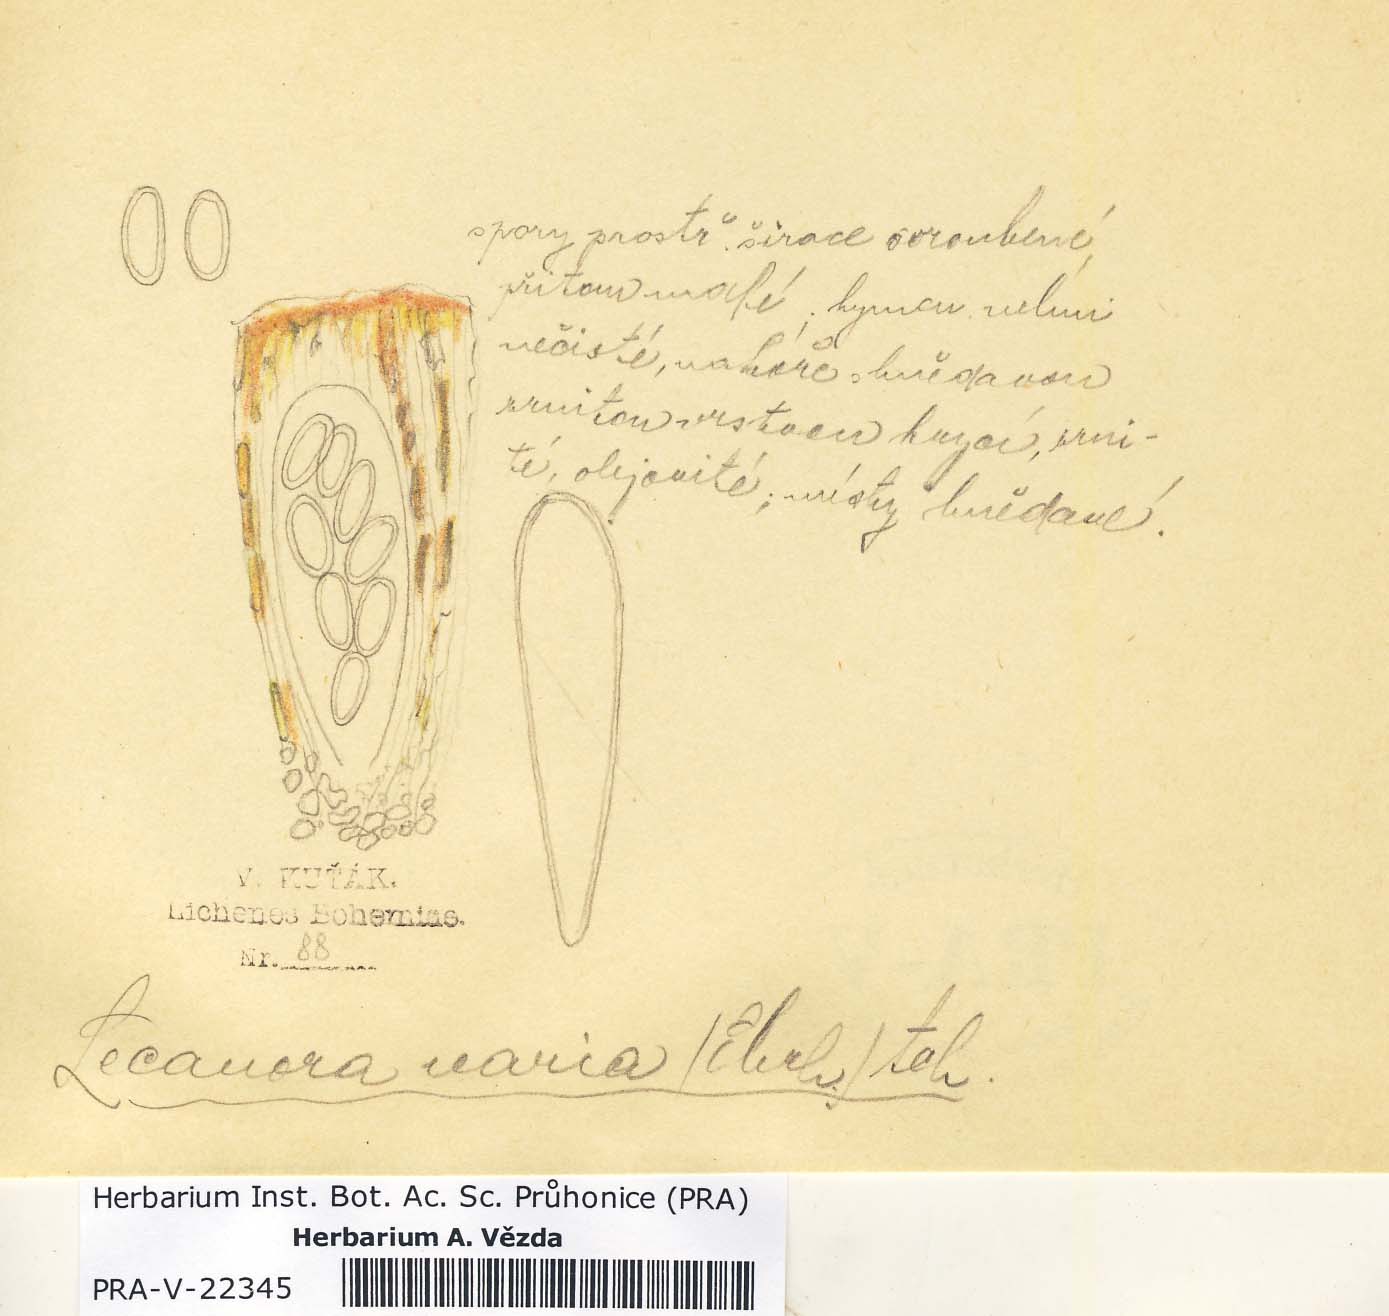 spory prostř. široce ovroubené,
přitom malé, hymen. velmi
nečisté, nahoře hnědavou
zrnitou vrstvou krycí, zrni-
té, olejovité, místy hnědavé.
V. KUŤÁK.
Lichenes Bohemiae.
Nr. 88
Lecanora varia (Ehrh.) Ach.
Herbarium Inst. Bot. Ac. Sc. Průhonice (PRA)
Herbarium A. Vězda
PRA-V-22345